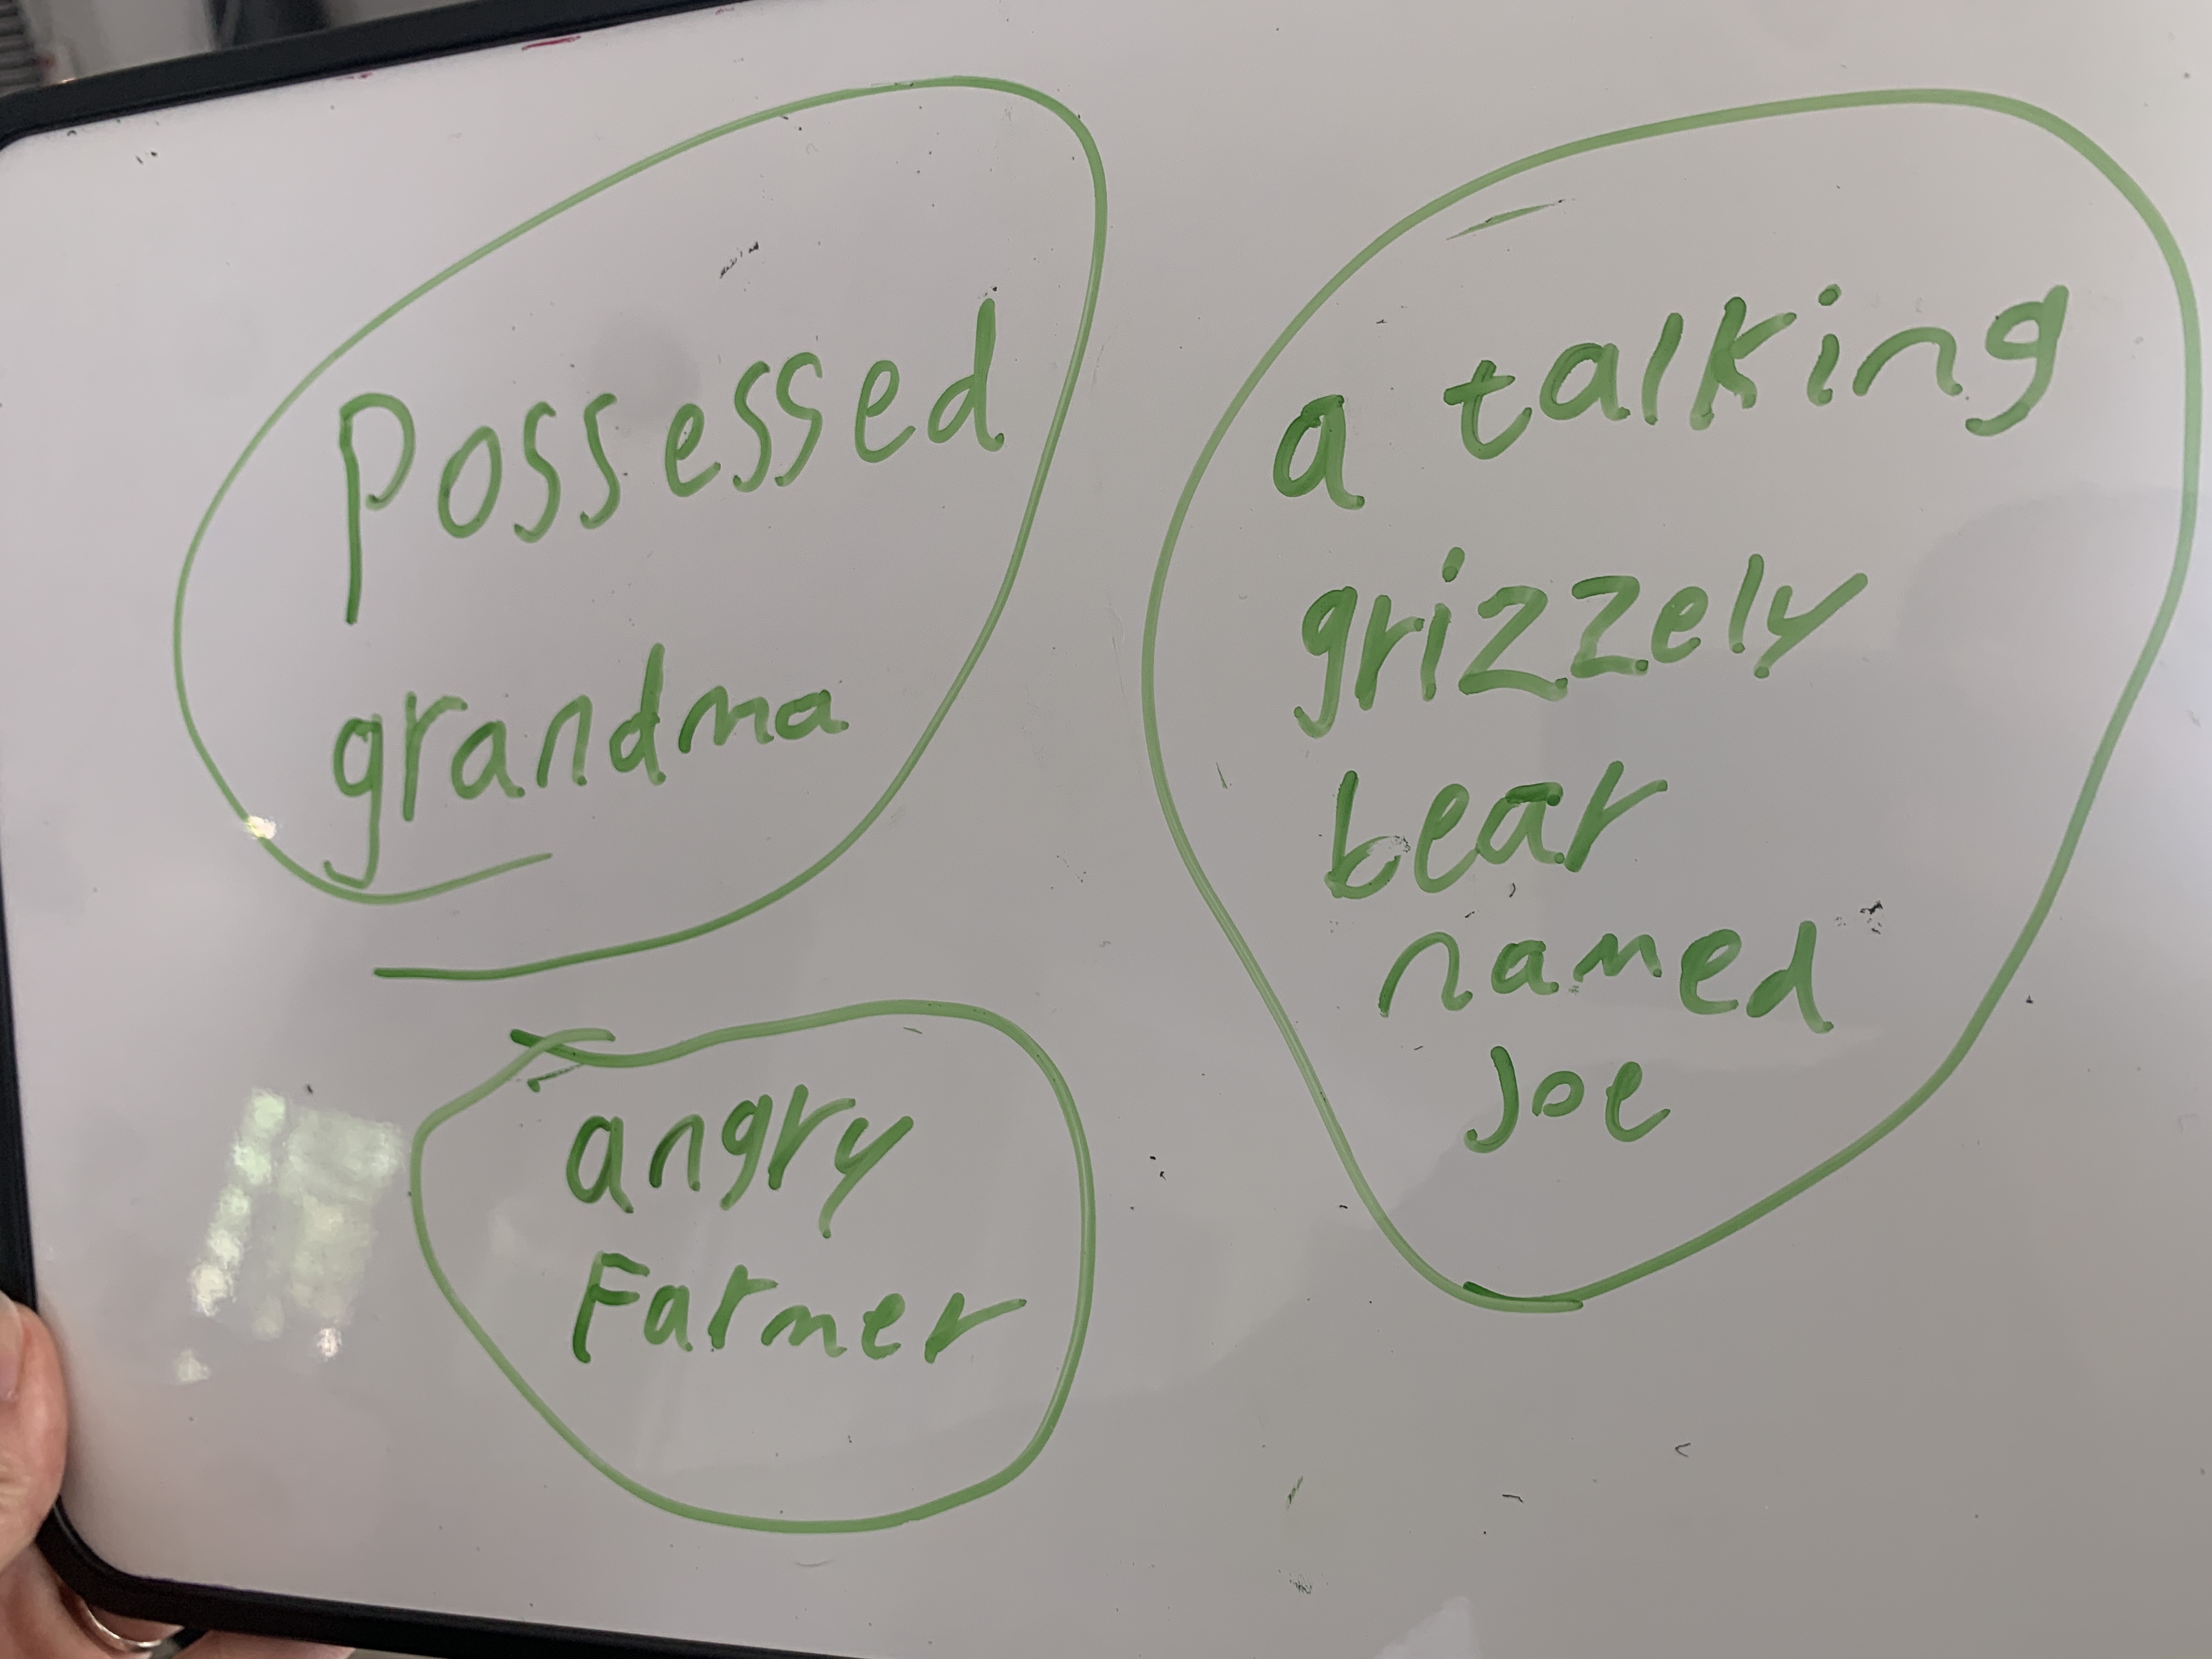 Possessed
grandma
angry
Farmer
a talking
grizzely
bear
named
Joe